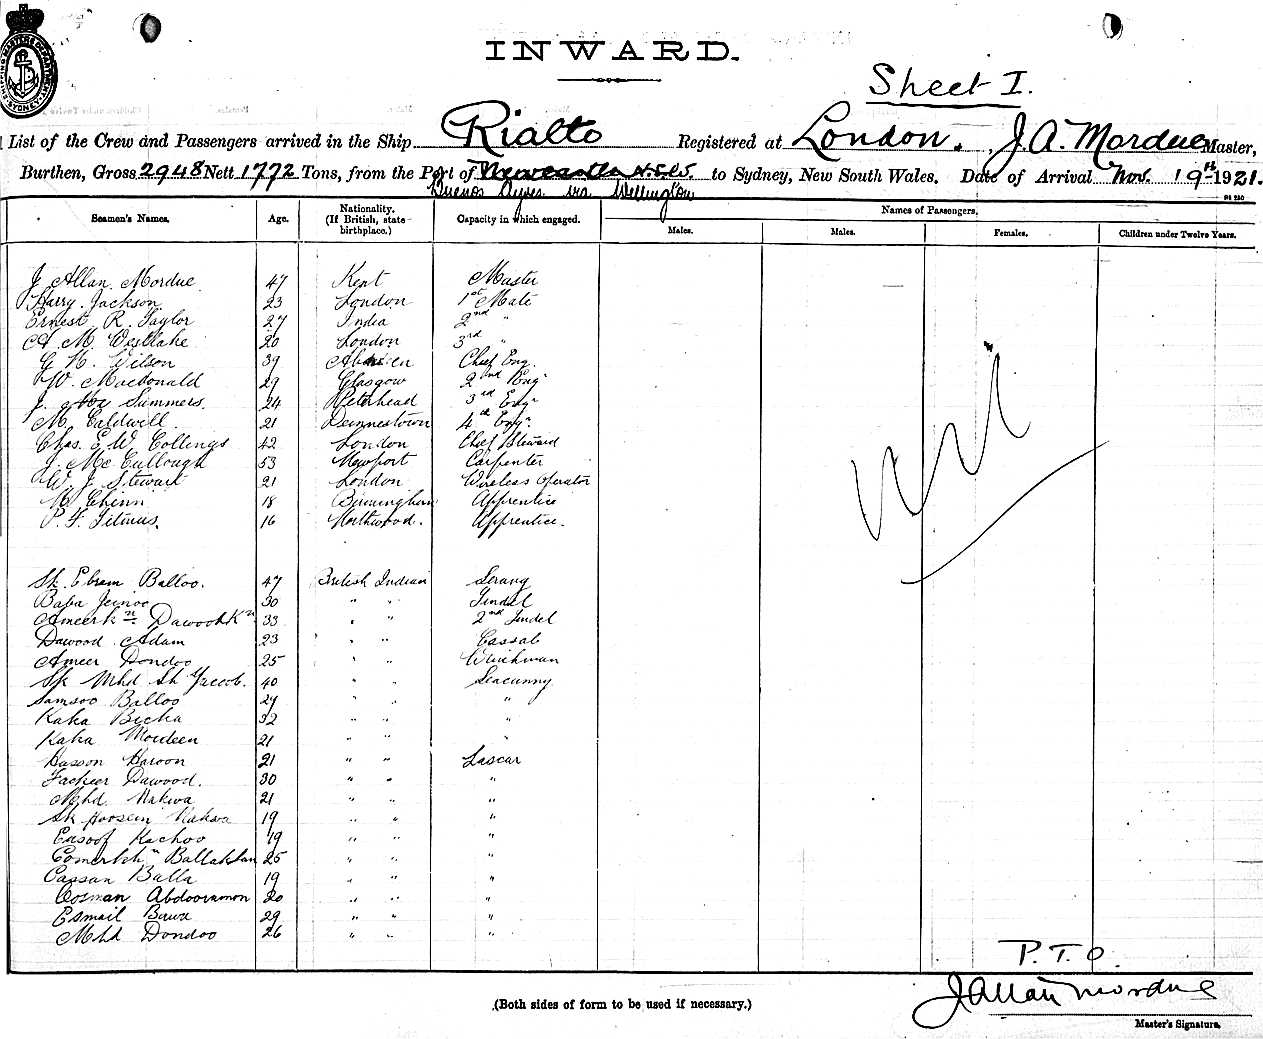 INWARD.
Sheet I.
List of the Crew and Passengers arrived in the Ship Rialto Registered at London. J. A. Mordue Master,
Burthen, Gross 2948 Nett 1772 Tons, from the Port of Newcastle N.S.W. to Sydney, New South Wales. Date of Arrival Nov. 19th 1921.
Buenos Ayres via Wellington
Seamen's Names. Age. Nationality. (If British, state birthplace.) Capacity in which engaged. Names of Passengers.
Males. Males. Females. Children under Twelve Years.
J Allan Mordue 47 Kent Master
Harry Jackson 23 London 1st Mate
Ernest R. Taylor 27 India 2nd "
A M Westlake 20 London 3rd "
G N. Wilson 39 Chief Eng.
W. Macdonald 29 Glasgow 2nd Eng
J. Summers. 24 Peterhead 3rd Eng
M. Caldwell 21 4th Eng.
Chas. E W Collings 42 London Chief Steward
J. Mc Cullough 53 Newport Carpenter
W J Stewart 21 London Wireless Operator
Chinn 18 Birmingham Apprentice
P. F. Titmus. 16 Northwood. Apprentice.
nil
Sk. Ebram Balloo. 47 British Indian Serang
Baba 30 " " Tindel
Ameerkn Dawookn 33 " " 2nd Tindel
Dawood Adam 23 " " Cassab
Ameer Dondoo 25 " " Winchman
Sk Mhd Sk Yacoob. 40 " " Seacunny
Samsoo Balloo 27 " " "
Kaka Bicha 32 " " "
Kaka Mordeen 21 " " "
Hasson Haroon 21 " " Lascar
Fackeer Dawood. 30 " " "
Mhd Nakwa 21 " " "
Sk Hoosein Nakwa 19 " " "
Ensoof Kachoo 19 " " "
Ballakhan 25 " " "
Cassan Balla 19 " " "
Oosman Abdooramon 20 " " "
Esmail Bawa 29 " " "
Mhd Dondoo 26 " " "
P. T. O.
(Both sides of form to be used if necessary.)
J Allan Mordue
Master's Signature.